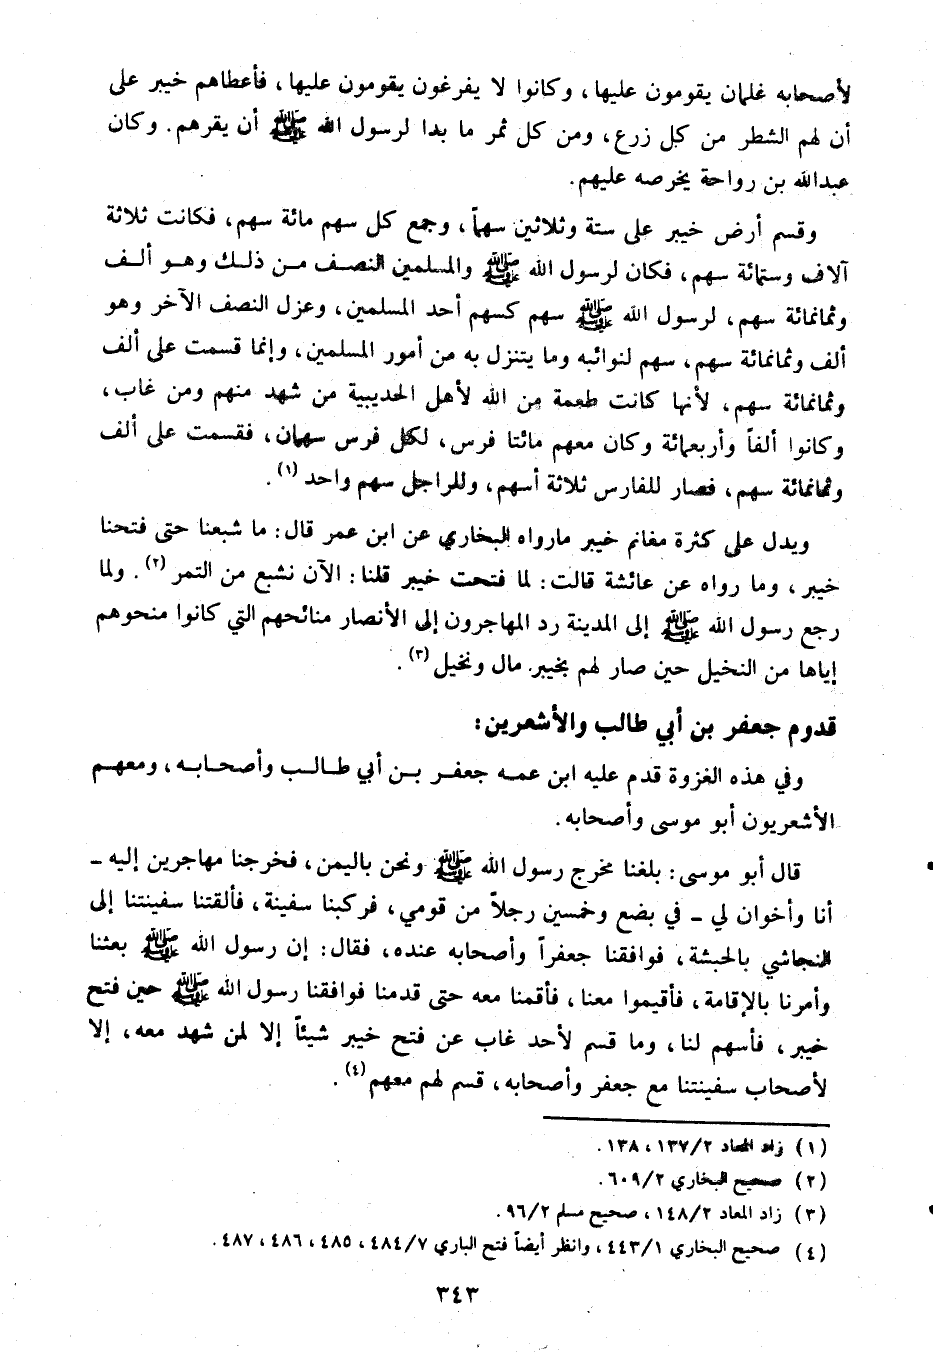 لأصحابه غلمان يقومون عليها، وكانوا لا يفرغون يقومون عليها، فأعطاهم خيبر على
أن لهم الشطر من كل زرع، ومن كل ثمر ما بدا لرسول الله ﷺ أن يقرهم. وكان
عبدالله بن رواحة يخرصه عليهم.
وقسم أرض خيبر على ستة وثلاثين سهماً، وجمع كل سهم مائة سهم، فكانت ثلاثة
آلاف وستمائة سهم، فكان لرسول الله ﷺ والمسلمين النصف من ذلك وهو ألف
وثمانمائة سهم، لرسول الله ﷺ سهم كسهم أحد المسلمين، وعزل النصف الآخر وهو
ألف وثمانمائة سهم، سهم لنوائبه وما يتنزل به من أمور المسلمين، وإنما قسمت على ألف
وثمانمائة سهم، لأنها كانت طعمة من الله لأهل الحديبية من شهد منهم ومن غاب،
وكانوا ألفاً وأربعمائة وكان معهم مائتا فرس، لكل فرس سهمان، فقسمت على ألف
وثمانمائة سهم، فصار للفارس ثلاثة أسهم، وللراجل سهم واحد (١).
ويدل على كثرة مغانم خيبر مارواه البخاري عن ابن عمر قال: ما شبعنا حتى فتحنا
خيبر، وما رواه عن عائشة قالت: لما فتحت خيبر قلنا: الآن نشبع من التمر (٢). ولما
رجع رسول الله ﷺ إلى المدينة رد المهاجرون إلى الأنصار منائحهم التي كانوا منحوهم
إياها من النخيل حين صار لهم بخيبر مال ونخيل (٣).
قدوم جعفر بن أبي طالب والأشعرين:
وفي هذه الغزوة قدم عليه ابن عمه جعفر بن أبي طالب وأصحابه، ومعهم
الأشعريون أبو موسى وأصحابه.
قال أبو موسى: بلغنا مخرج رسول الله ﷺ ونحن باليمن، فخرجنا مهاجرين إليه ـ
أنا وأخوان لي ـ في بضع وخمسين رجلاً من قومي، فركبنا سفينة، فألقتنا سفينتنا إلى
النجاشي بالحبشة، فوافقنا جعفراً وأصحابه عنده، فقال: إن رسول الله ﷺ بعثنا
وأمرنا بالإقامة، فأقيموا معنا، فأقمنا معه حتى قدمنا فوافقنا رسول الله ﷺ حين فتح
خيبر، فأسهم لنا، وما قسم لأحد غاب عن فتح خيبر شيئاً إلا لمن شهد معه، إلا
لأصحاب سفينتنا مع جعفر وأصحابه، قسم لهم معهم (٤).
(١) زاد المعاد ١٣٧/٢، ١٣٨.
(٢) صحيح البخاري ٦٠٩/٢.
(٣) زاد المعاد ١٤٨/٢، صحيح مسلم ٩٦/٢.
(٤) صحيح البخاري ٤٤٣/١، وانظر أيضاً فتح الباري ٤٨٤/٧، ٤٨٥، ٤٨٦، ٤٨٧.
٣٤٣